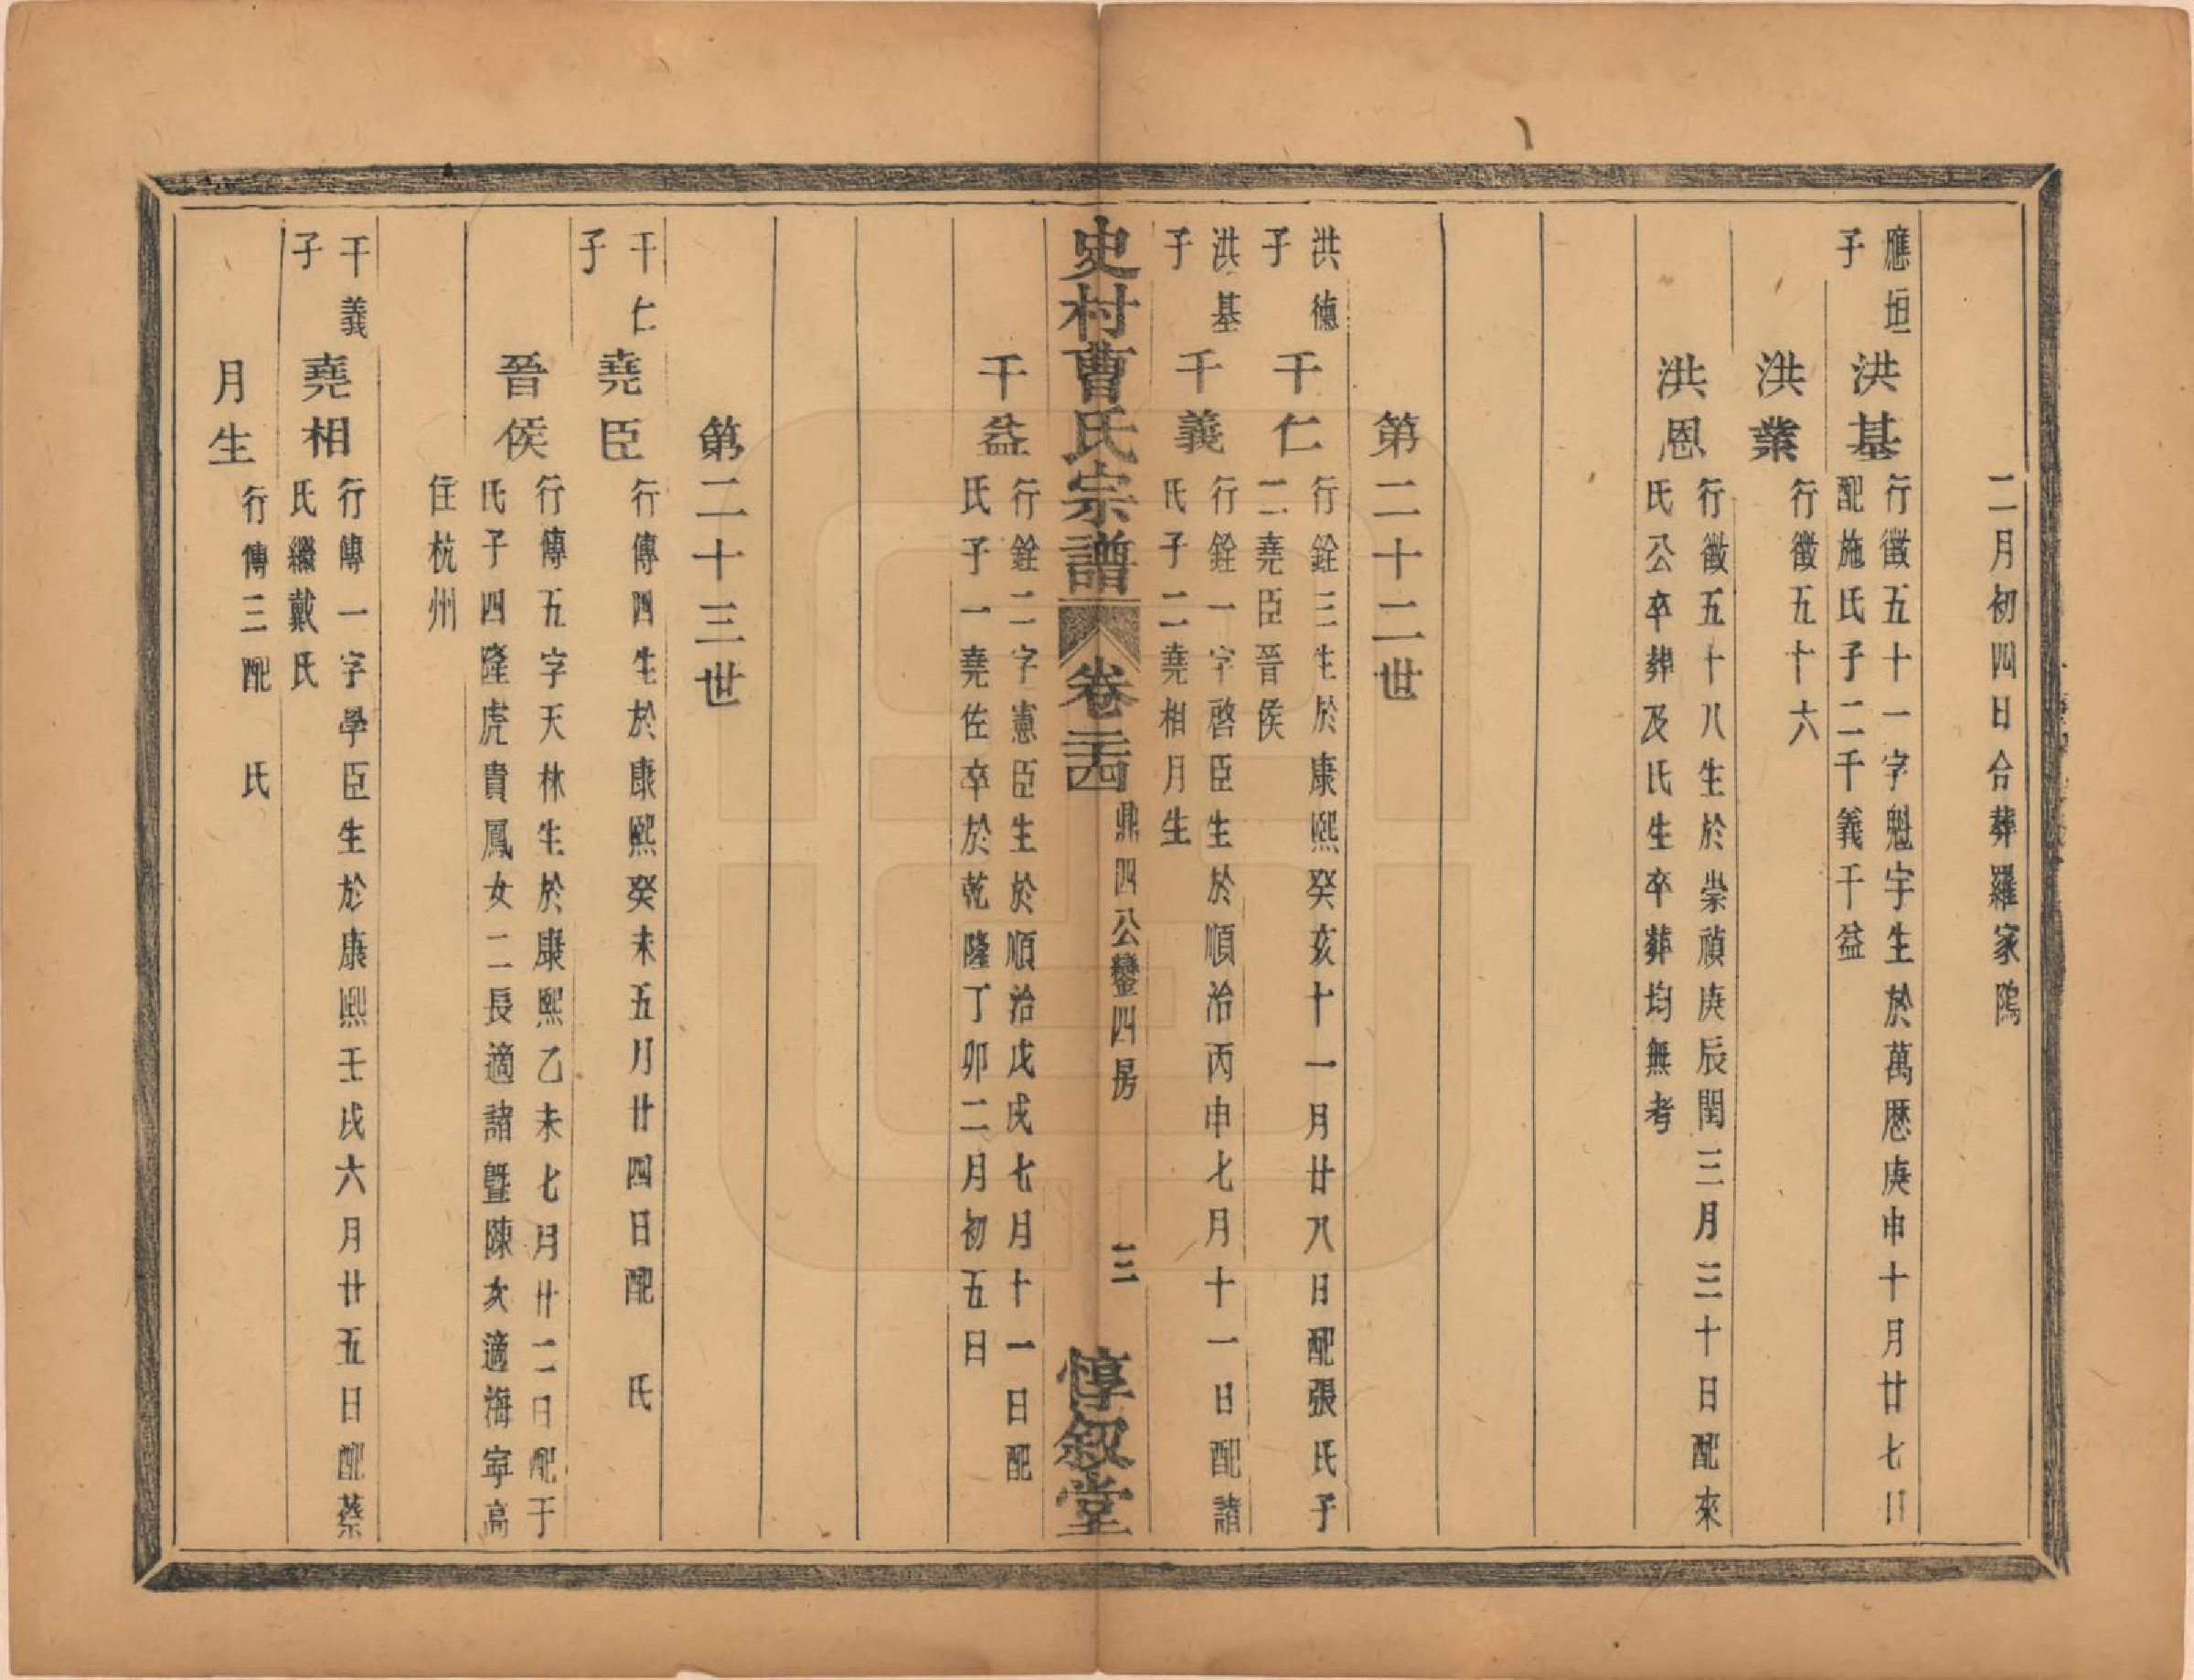 二月初四日合葬羅家隖
應垣子
洪基
行徵五十一字魁宇生於萬歷庚申十月廿七日
配施氏子二千義千益
洪業
行徵五十六
洪恩
行徵五十八生於崇禎庚辰閏三月三十日配來
氏公卒葬及氏生卒葬均無考
第二十二世
洪德子
千仁
行銓三生於康熙癸亥十一月廿八日配張氏子
二堯臣晉侯
洪基子
千義
行銓一字啓臣生於順治丙申七月十一日配諸
氏子二堯相月生
史村曹氏宗譜
卷二十四
鼎四公鑾四房
三
惇叙堂
千益
行銓二字憲臣生於順治戊戌七月十一日配
氏子一堯佐卒於乾隆丁卯二月初五日
第二十三世
千仁子
堯臣
行傳四生於康熙癸未五月廿四日配　氏
晉侯
行傳五字天林生於康熙乙未七月廿二日配于
氏子四隆虎貴鳳女二長適諸暨陳次適海寧高
住杭州
千義子
堯相
行傳一字學臣生於康熙壬戌六月廿五日配蔡
氏繼戴氏
月生
行傳三配　氏